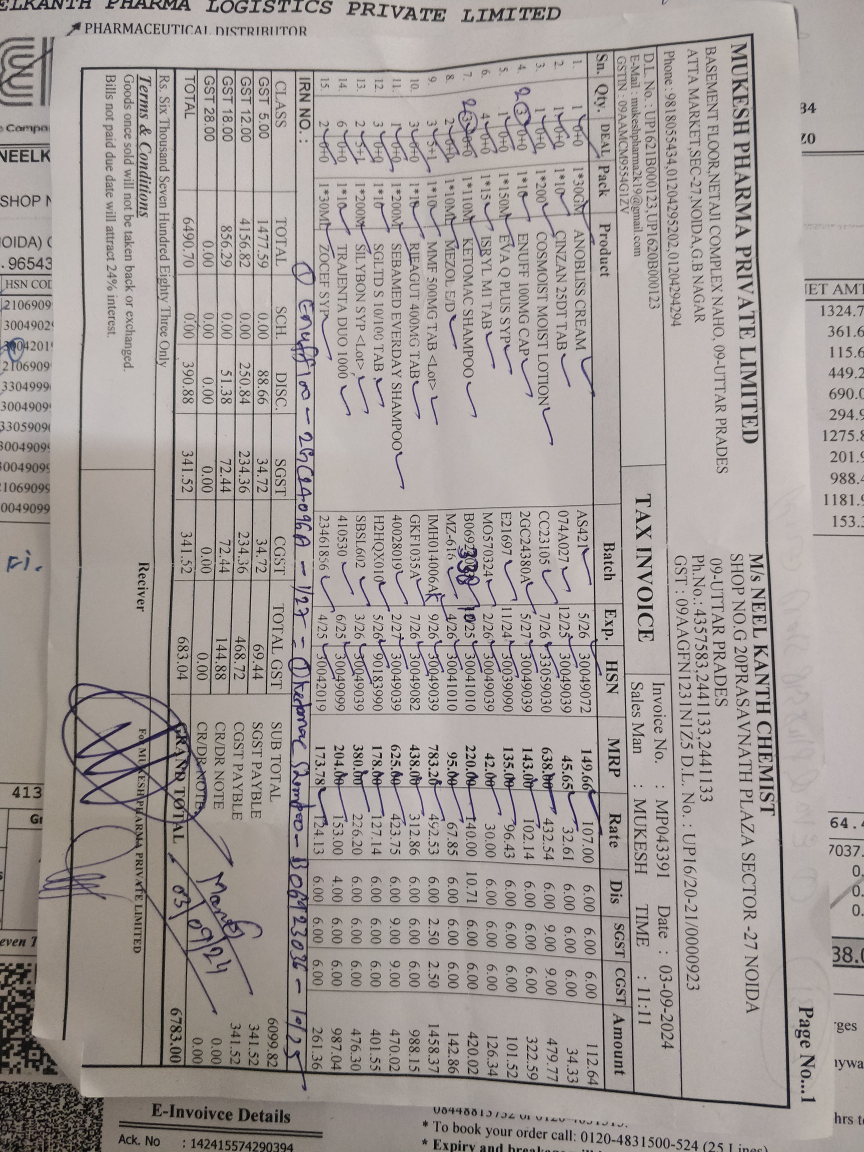 ELKANTH PHARMA LOGISTICS PRIVATE LIMITED
PHARMACEUTICAL DISTRIBUTOR
Page No...1
MUKESH PHARMA PRIVATE LIMITED
BASEMENT FLOOR,NETAJI COMPLEX NAHO, 09-UTTAR PRADES
ATTA MARKET,SEC-27,NOIDA,G.B NAGAR
Phone : 9818055434,01204295202,01204294294
D.L. No. : UP1621B000123,UP1620B000123
E-Mail : mukeshpharma2k19@gmail.com
GSTIN : 09AAMCM9554G1ZV
M/s NEEL KANTH CHEMIST
SHOP NO.G 20PRASAVNATH PLAZA SECTOR -27 NOIDA
09-UTTAR PRADES
Ph.No.: 4357583.2441133.2441133
GST : 09AAGFN1231N1Z5 D.L. No. : UP16/20-21/0000923
TAX INVOICE
Invoice No. : MP043391 Date : 03-09-2024
Sales Man : MUKESH TIME : 11:11
Sn. Qty. DEAL Pack Product Batch Exp. HSN MRP Rate Dis SGST CGST Amount
1. 1 0+0 1*30GM ANOBLISS CREAM AS421 5/26 30049072 149.66 107.00 6.00 6.00 6.00 112.64
2. 1 0+0 1*10 CINZAN 25DT TAB 074A027 12/25 30049039 45.65 32.61 6.00 6.00 6.00 34.33
3. 1 0+0 1*200 COSMOIST MOIST LOTION CC23105 7/26 33059030 638.00 432.54 6.00 9.00 9.00 479.77
4. 3 0+0 1*10 ENUFF 100MG CAP 2GC24380A 5/27 30049039 143.00 102.14 6.00 6.00 6.00 322.59
5. 1 0+0 1*150M EVA Q PLUS SYP E21697 11/24 30039090 135.00 96.43 6.00 6.00 6.00 101.52
6. 4 0+0 1*15 ISRYL M1 TAB MO570324 2/26 30049039 42.00 30.00 6.00 6.00 6.00 126.34
7. 3 0+0 1*110M KETOMAC SHAMPOO 30041010 220.00 140.00 10.71 6.00 6.00 420.02
8. 2 0+0 1*10M MEZOL E/D MZ-616 4/26 30041010 95.00 67.85 6.00 6.00 6.00 142.86
9. 3 .5+1 1*10 MMF 500MG TAB <Lot> IMH014006A 9/26 30049039 783.20 492.53 6.00 2.50 2.50 1458.37
10. 3 0+0 RIFAGUT 400MG TAB GKF1035A 7/26 30049082 438.00 312.86 6.00 6.00 6.00 988.15
11. 1 0+0 1*200M SEBAMED EVERDAY SHAMPOO 40028019 2/27 30049039 625.00 423.75 6.00 9.00 9.00 470.02
12. 3 0+0 1*10 SGLTD S 10/100 TAB H2HQX010 5/26 90183990 178.00 127.14 6.00 6.00 6.00 401.55
13. 2 .5+1 1*200M SILYBON SYP <Lot> SBSL602 3/26 30049039 380.00 226.20 6.00 6.00 6.00 476.30
14. 6 0+0 1*10 TRAJENTA DUO 1000 410530 6/25 30049099 204.00 153.00 4.00 6.00 6.00 987.04
15. 2 0+0 1*30M ZOCEF SYP 23461856 4/25 30042019 173.78 124.13 6.00 6.00 6.00 261.36
IRN NO. :
① Enuff 100 - 2GC24096A - 1/27 - ① Ketomac Shampoo - B06923036 - 10/25
CLASS TOTAL SCH. DISC. SGST CGST TOTAL GST
GST 5.00 1477.59 0.00 88.66 34.72 34.72 69.44
GST 12.00 4156.82 0.00 250.84 234.36 234.36 468.72
GST 18.00 856.29 0.00 51.38 72.44 72.44 144.88
GST 28.00 0.00 0.00 0.00 0.00 0.00 0.00
TOTAL 6490.70 0.00 390.88 341.52 341.52 683.04
SUB TOTAL 6099.82
SGST PAYBLE 341.52
CGST PAYBLE 341.52
CR/DR NOTE 0.00
CR/DR NOTE 0.00
GRAND TOTAL 6783.00
03/09/24
Rs. Six Thousand Seven Hundred Eighty Three Only
Terms & Conditions
Goods once sold will not be taken back or exchanged.
Bills not paid due date will attract 24% interest.
Reciver
For MUKESH PHARMA PRIVATE LIMITED
E-Invoivce Details
Ack. No : 142415574290394
* To book your order call: 0120-4831500-524 (25 Lines)